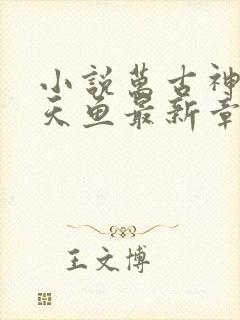 小說萬古神
天魚最新章
王文博